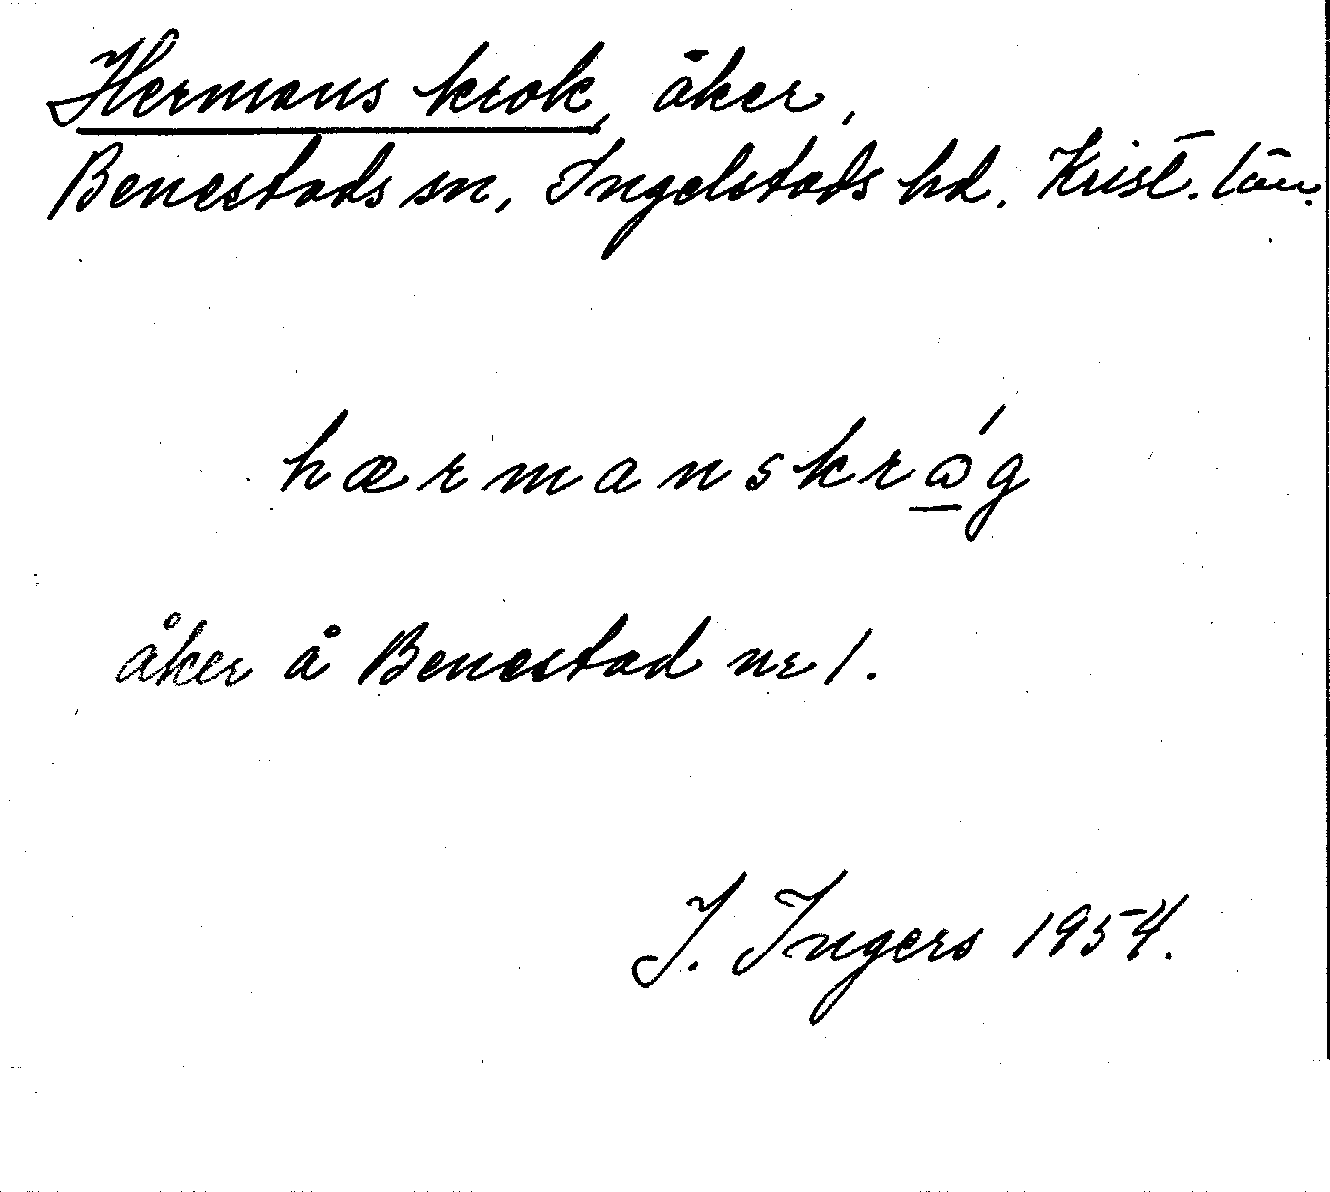 Hermans krok, åker,
Benestads sn, Ingelstads hd. Krist. län.
hærmanskrώ̲g
åker å Benestad nr 1.
I. Ingers 1954.